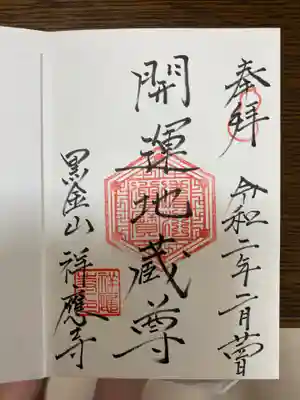 奉拝 令和二年二月
開運地蔵尊
黒金山 祥應寺